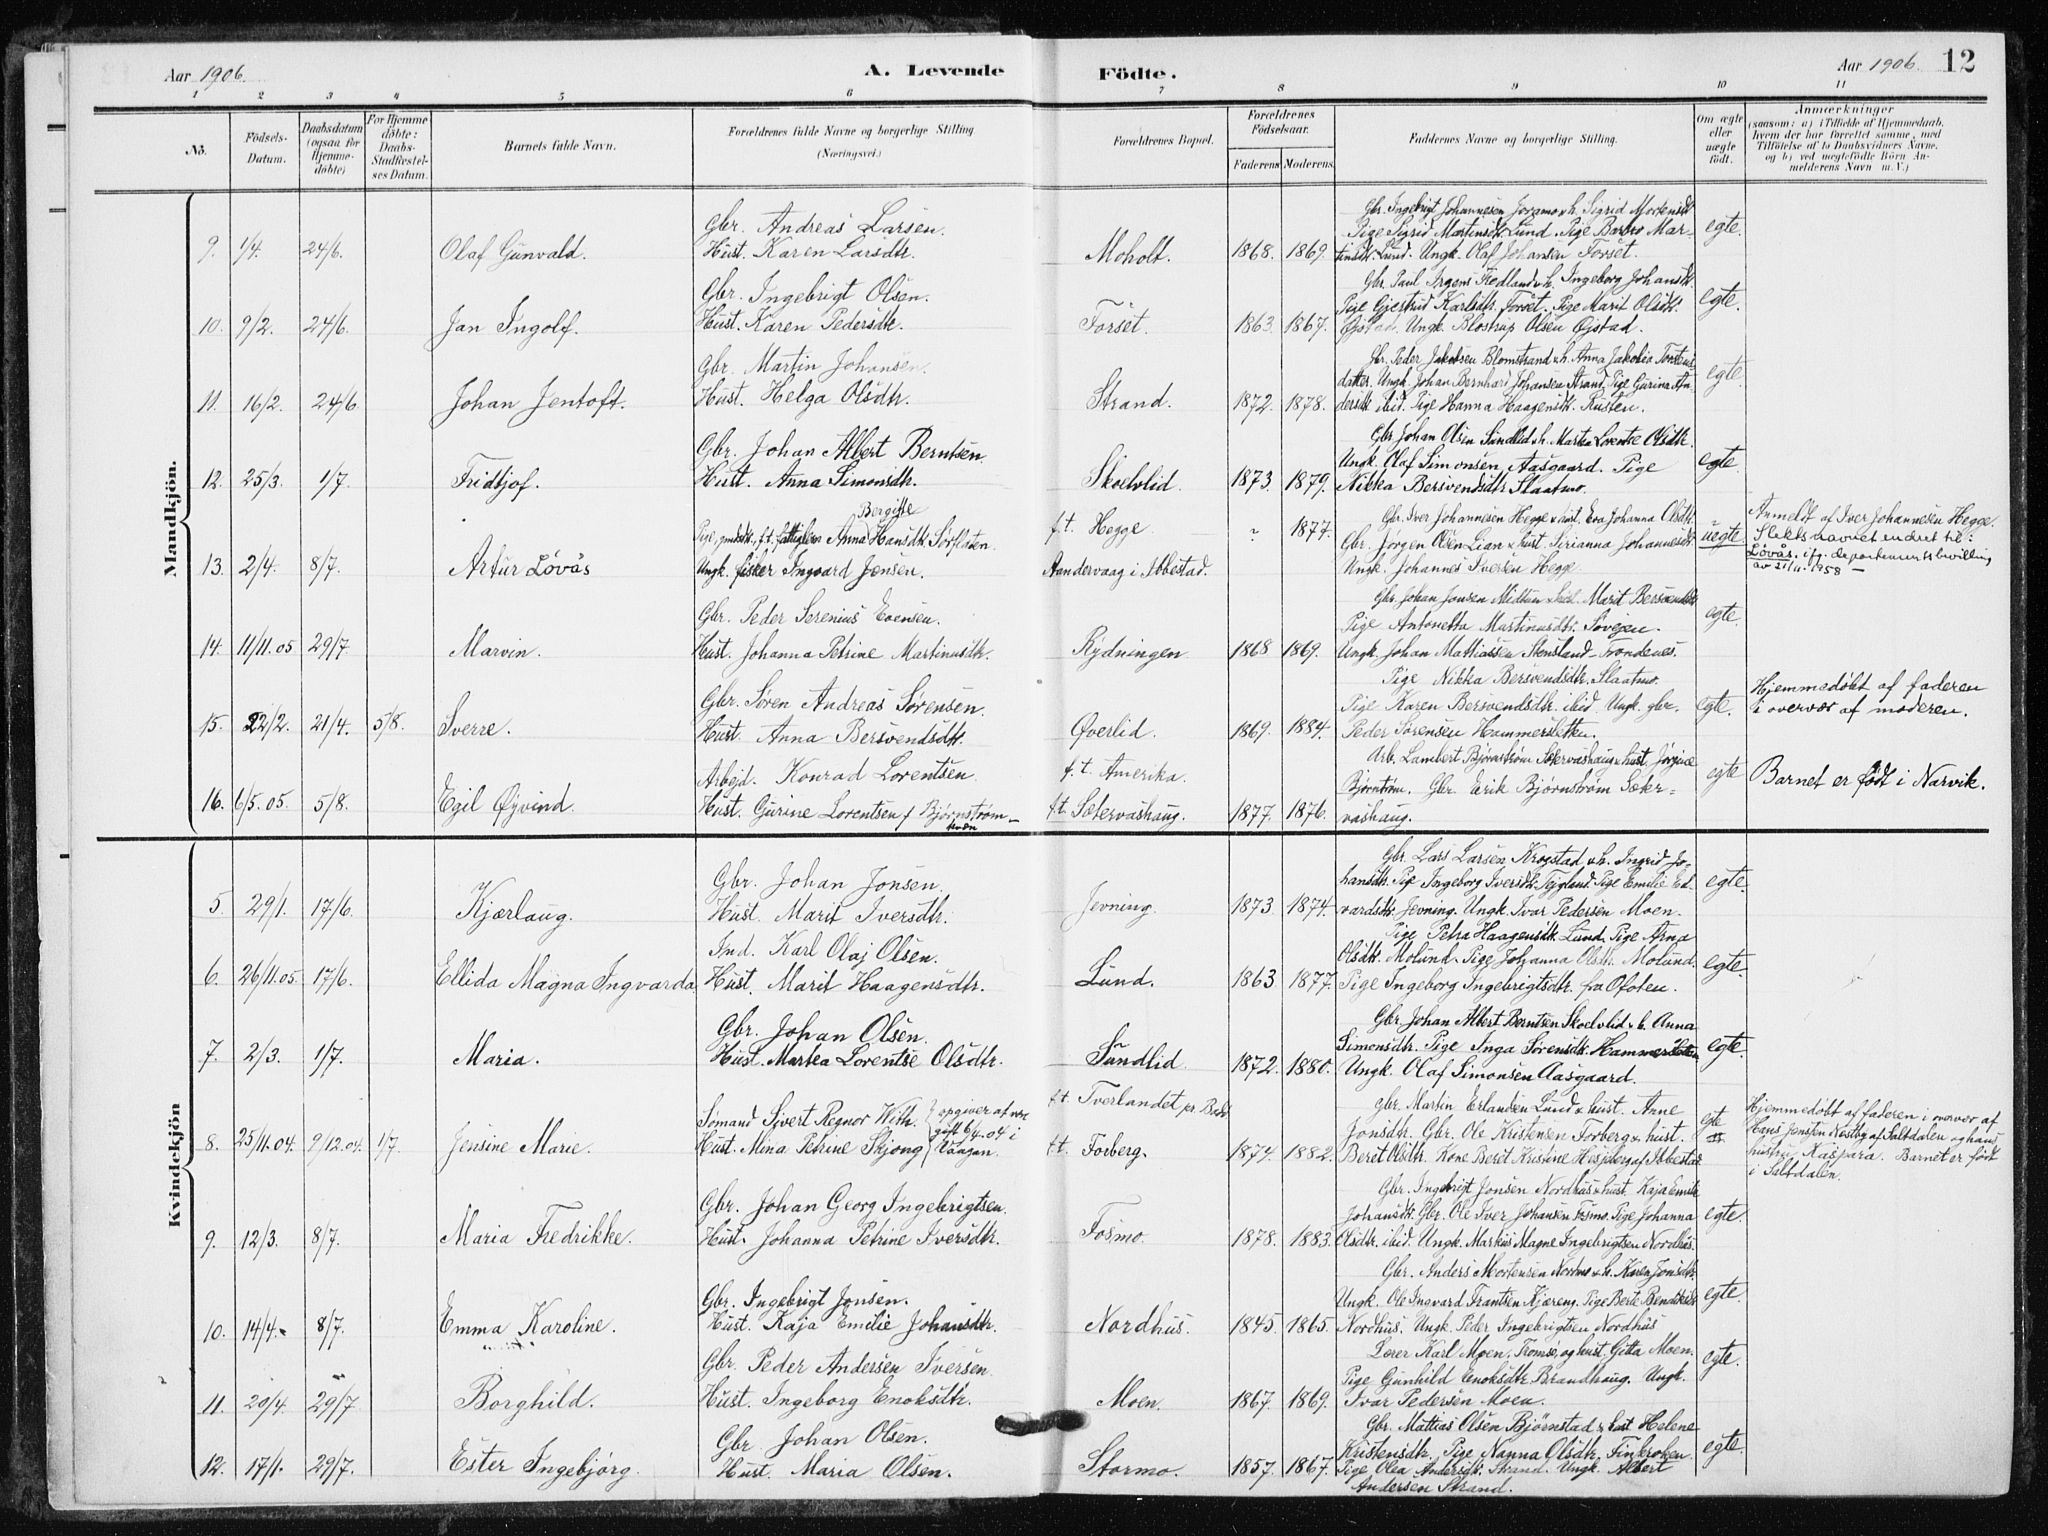 Aar 1906. A. Levende Födte. Aar 1906 12
1 2 3 4 5 6 7 8 9 10 11
No. Födsels-Datum. Daabsdatum (ogsaa for Hjemmedöbte) For Hjemmedöbte: Daabs-Stadfæstelses Datum. Barnets fulde Navn. Forældrenes fulde Navne og borgerlige Stilling (Næringsvei.) Forældrenes Bopæl. Forældrenes Födselsaar. Faderens Moderens. Faddernes Navne og borgerlige Stilling. Om ægte eller uægte födt. Anmærkninger (saasom: a) i Tilfælde af Hjemmedaab, hvem der har forrettet samme, med Tilföielse af to Daabsvidners Navne, og b) ved uegtefödte Börn Anmelderens Navn m. V.)
Mandkjön.
Gbr. Ingebrigt Johannesen Joramo & h. Sigrid Mortensdt
Gbr. Andreas Larsen. Pige Sigrid Martinsdt. Lund. Pige Barbro Mar- egte.
9. 1/4. 24/6. Olaf Gunvald. Hust. Karen Larsdtr. Moholt. 1868. 1869. tinsdt. Lund. Ungk. Olaf Johansen Forset.
Gbr. Ingebrigt Olsen. Gbr. Paul h. Ingeborg Johansdt.
Pige Gjertrud Karlsdtr. Forset. Pige Marit Olsdt. egte.
10. 9/2. 24/6. Jan Ingolf. Hust. Karen Pedersdtr. Forset. 1863. 1867. Øistad. Ungk. Olsen Øistad.
Gbr. Martin Johansen. Gbr. Peder Jakobsen Blomstrand & h. Anna Jakobia Torstens
datter. Ungk. Johan Bernhard Johansen Strand. Pige Gurina An- egte.
11. 16/2. 24/6 Johan Jentoft. Hust. Helga Olsdtr. Strand. 1872. 1878. dersdt. ibid. Pige Hanna Haagensdt. Rusten.
Gbr. Johan Albert Berntsen. Gbr. Johan Olsen Sundlid & h. Martea Lorentse Olsdtr.
Ungk. Olaf Simonsen Aasgaard. Pige egte.
12. 25/3. 1/7. Fridtjof. Hust. Anna Simonsdtr. Skoelvlid. 1873. 1879. Nikka Bersvendsdtr. Slaatmo.
Bergitte
Pige, f.t. Anna Hansdtr. Sørflaten. f.t. Hegge " 1877. Gbr. Iver Johannesen Hegge & hust. Eva Johanna Olsdt. uegte. Anmeldt af Iver Johannesen Hegge.
Gbr. Jørgen Olsen Lian & hust. Sirianna Johannesdt. Slektsnavnet endret til:
13. 2/4. 8/7. Artur Lövås Ungk. fisker Ingvard Jensen. Aandervaag i Ibbestad. Ungk. Johannes Iversen Hegge Lövås. ifg. departementsbevilling
av 21/11 1958 —
Gbr. Peder Serenius Evensen. Gbr. Johan Jonsen Midtun & hust. Marit Bersvendsdt egte.
Pige Antonetta Martinusdtr. Søvegen.
14. 11/11.05 29/7. Marvin. Hust. Johanna Petrine Martinusdtr. Rydningen 1868 1869. Ungk. Johan Mathiassen Stensland – Trondenes.
Pige Nikka Bersvendsdtr. Slaatmo.
Gbr. Søren Andreas Sørensen. Pige Karen Bersvendsdtr. ibid. Ungk. gbr. egte. Hjemmedøbt af faderen
15. 22/2. 21/4. 5/8. Sverre. Hust. Anna Bersvendsdtr. Øverlid. 1869. 1884. Peder Sørensen Hammersletten. i overvær af moderen.
Arbejd. Konrad Lorentsen. f.t. Amerika. Arb. Lambert Bjørnstrøm Sætervashaug & hust. Jørgine egte
Bjørnstrøm. Gbr. Erik Bjørnstrøm Sæter- Barnet er født i Narvik.
16. 6/5.05. 5/8. Egil Øyvind. Hust. Gurine Lorentsen f. Bjørnstrøm — f.t. Sætervashaug. 1877. 1876. vashaug.
Kvindekjön
Gbr. Johan Jonsen. Gbr. Lars Larsen Krogstad & h. Ingrid Jo-
hansdtr. Pige Ingeborg Iversdtr. Pige Emilie Ed- egte.
5. 29/1. 17/6. Kjærlaug. Hust. Marit Iversdtr. Jevning. 1873. 1874. vardsdt. Jevning. Ungk. Ivar Pedersen Moen.
Ind. Karl Olaj Olsen. Pige Petra Haagensdt. Lund. Pige Arna
Olsdtr. Molund. Pige Johanna Olsdtr. Molund. egte.
6. 26/11.05. 17/6. Ellida Magna Ingvarda Hust. Marit Haagensdtr. Lund. 1863 1877. Pige Ingeborg Ingebrigtsdtr. fra Ofoten.
Gbr. Johan Olsen. Gbr. Johan Albert Berntsen Skoelvlid & h. Anna
Simonsdtr. Pige Inga Sørensdt. Hammersletten egte.
7. 2/3. 1/7. Maria. Hust. Martea Lorentse Olsdtr. Sundlid 1872. 1880. Ungk. Olaf Simonsen Aasgaard.
Sømand Sivert Regnor With. opgiver at være f.t. Tverlandet pr. Bodø Gbr. Martin Erlandsen Lund & hust. Anne egte Hjemmedøbt af faderen i overvær af
gift 6/4.04 i Jonsdtr. Gbr. Ole Kristensen Forberg & hust. Hans Jensten Nestby af Saltdalen og hans
8. 25/11.04. 9/12.04. 1/7. Jensine Marie. Hust. Mina Petrine Skjong Vaagan. f.t. Forberg. 1874. 1882. Beret Olsdtr. Kone Beret Kristine af Ibbestad hustru Kaspara. Barnet er født
i Saltdalen.
Gbr. Johan Georg Ingebrigtsen. Gbr. Ingebrigt Jonsen Nordhus & hust. Kaja Emilie
Johansdt. Gbr. Ole Iver Johansen Fosmo. Pige Johanna egte.
9. 12/3. 8/7. Maria Fredrikke. Hust. Johanna Petrine Iversdtr. Fosmo 1878. 1883. Olsdtr. ibid. Ungk. Markus Magne Ingebrigtsen Nordhus.
Gbr. Ingebrigt Jonsen. Gbr. Anders Mortensen & h. Karen Jonsdtr.
Ungk. Ole Ingvard Frantsen Kjæreng. Pige Berte Bendiksdt egte.
10. 14/4. 8/7. Emma Karoline. Hust. Kaja Emilie Johansdtr. Nordhus. 1845. 1865. Nordhus. Ungk. Peder Ingebrigtsen Nordhus
Gbr. Peder Andersen Iversen. Lærer Karl Moen, Tromsø, og hust. Gitta Moen. egte.
Pige Gunhild Enoksdtr. Brandhaug. Ungk.
11. 20/4. 29/7 Borghild. Hust. Ingeborg Enoksdtr. Moen. 1867. 1869. Ivar Pedersen Moen.
Gbr. Johan Olsen. Gbr. Mattias Olsen Bjørnstad & hust Helene
Kristensdtr. Pige Nanna Olsdtr. Finkroken egte.
12. 17/1. 29/7. Ester Ingebjørg. Hust. Maria Olsen. Stormo. 1857. 1867. Pige Olea Andersdt. Strand. Ungk. Albert
Andersen Strand.